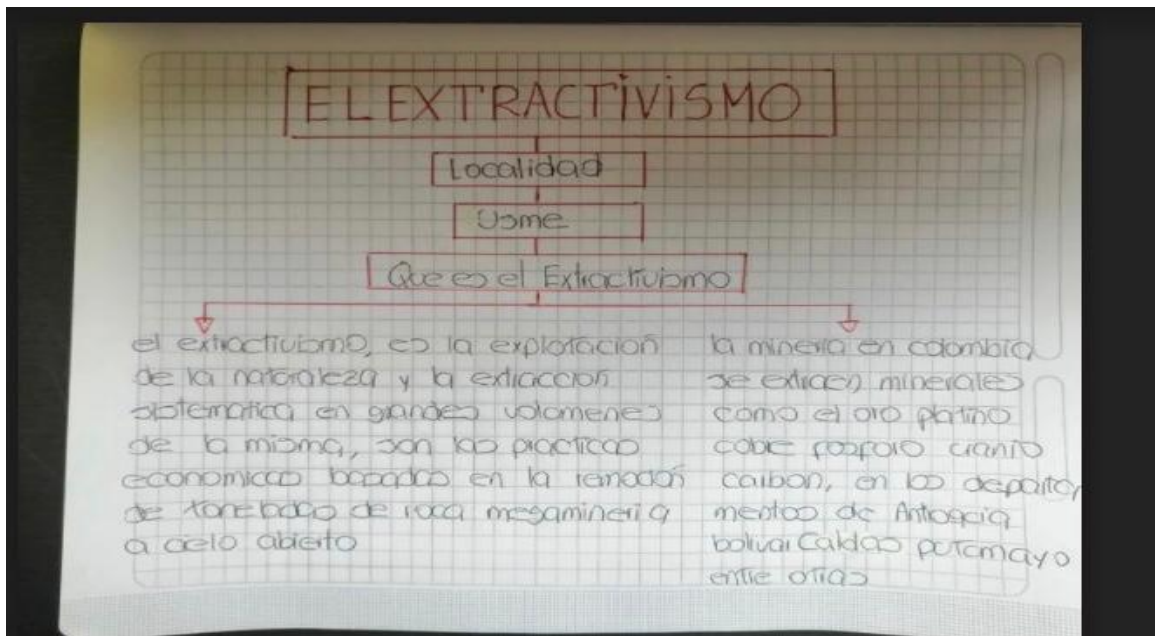 EL EXTRACTIVISMO
Localidad
Usme
Que es el Extractivismo
el extractivismo, es la explotacion
de la naturaleza y la extraccion
sistematica en grandes volomenes
de la misma, son las practicas
economicas basadas en la remocion
de toneladas de roca megamineria
a cielo abierto
la mineria en colombia
se extraen minerales
como el oro platino
cobre fosforo uranio
carbon, en los departa,
mentos de Antioquia
bolivar Caldas putumayo
entre otras